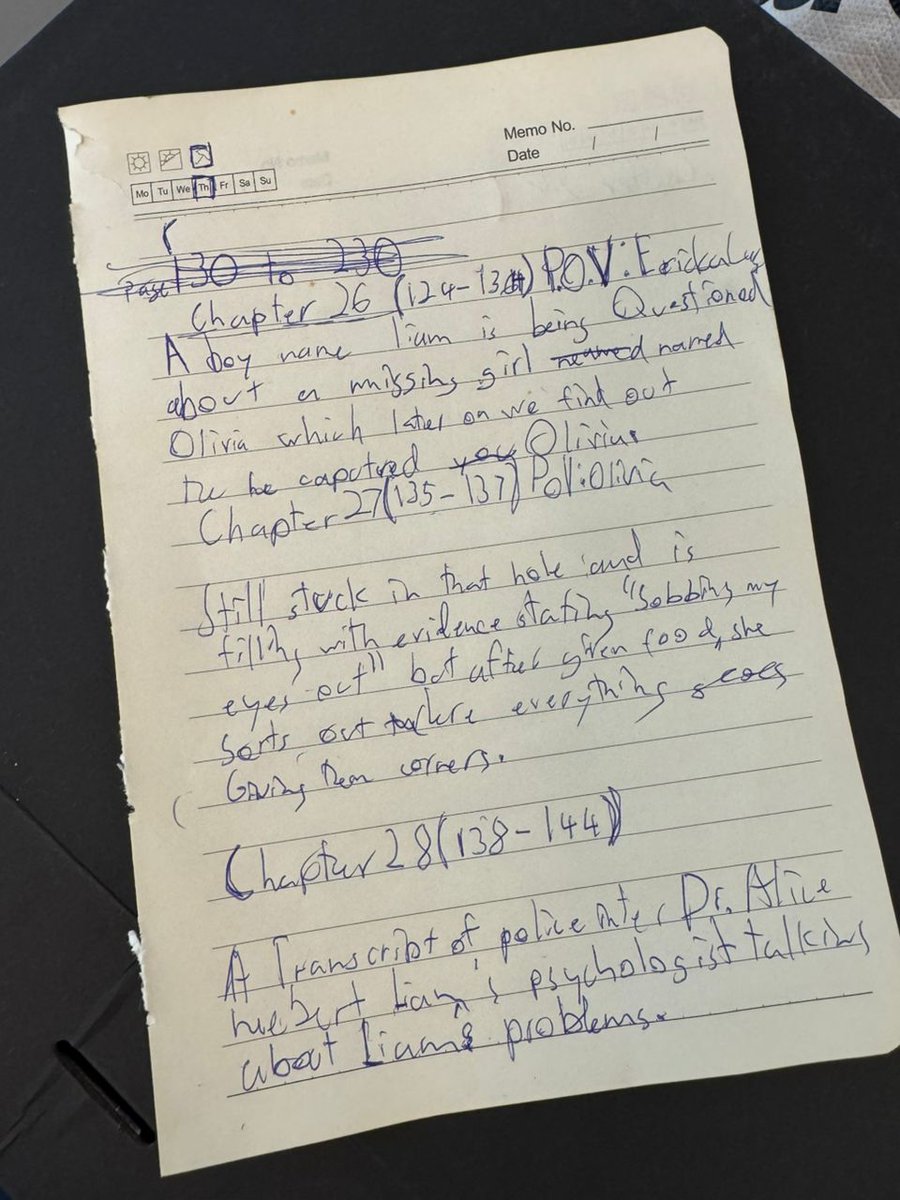 Memo No.
Date / /
Mo Tu We Th Fr Sa Su
Page 130 to 230
Chapter 26 (124-134) P.O.V:
A boy name liam is being Questioned
about a missing girl named named
Olivia which later on we find out
he capotured you Olivius
Chapter 27 (135-137) PoV:Olivia
Still stuck in that hole and is
filling with evidence stating "Sobbing my
eyes out" but after given food, she
Sorts out where everything goes
Giving them corners.
Chapter 28 (138-144)
A Transcript of police inter Dr. Alice
Liam's psychologist talking
about Liams problems.